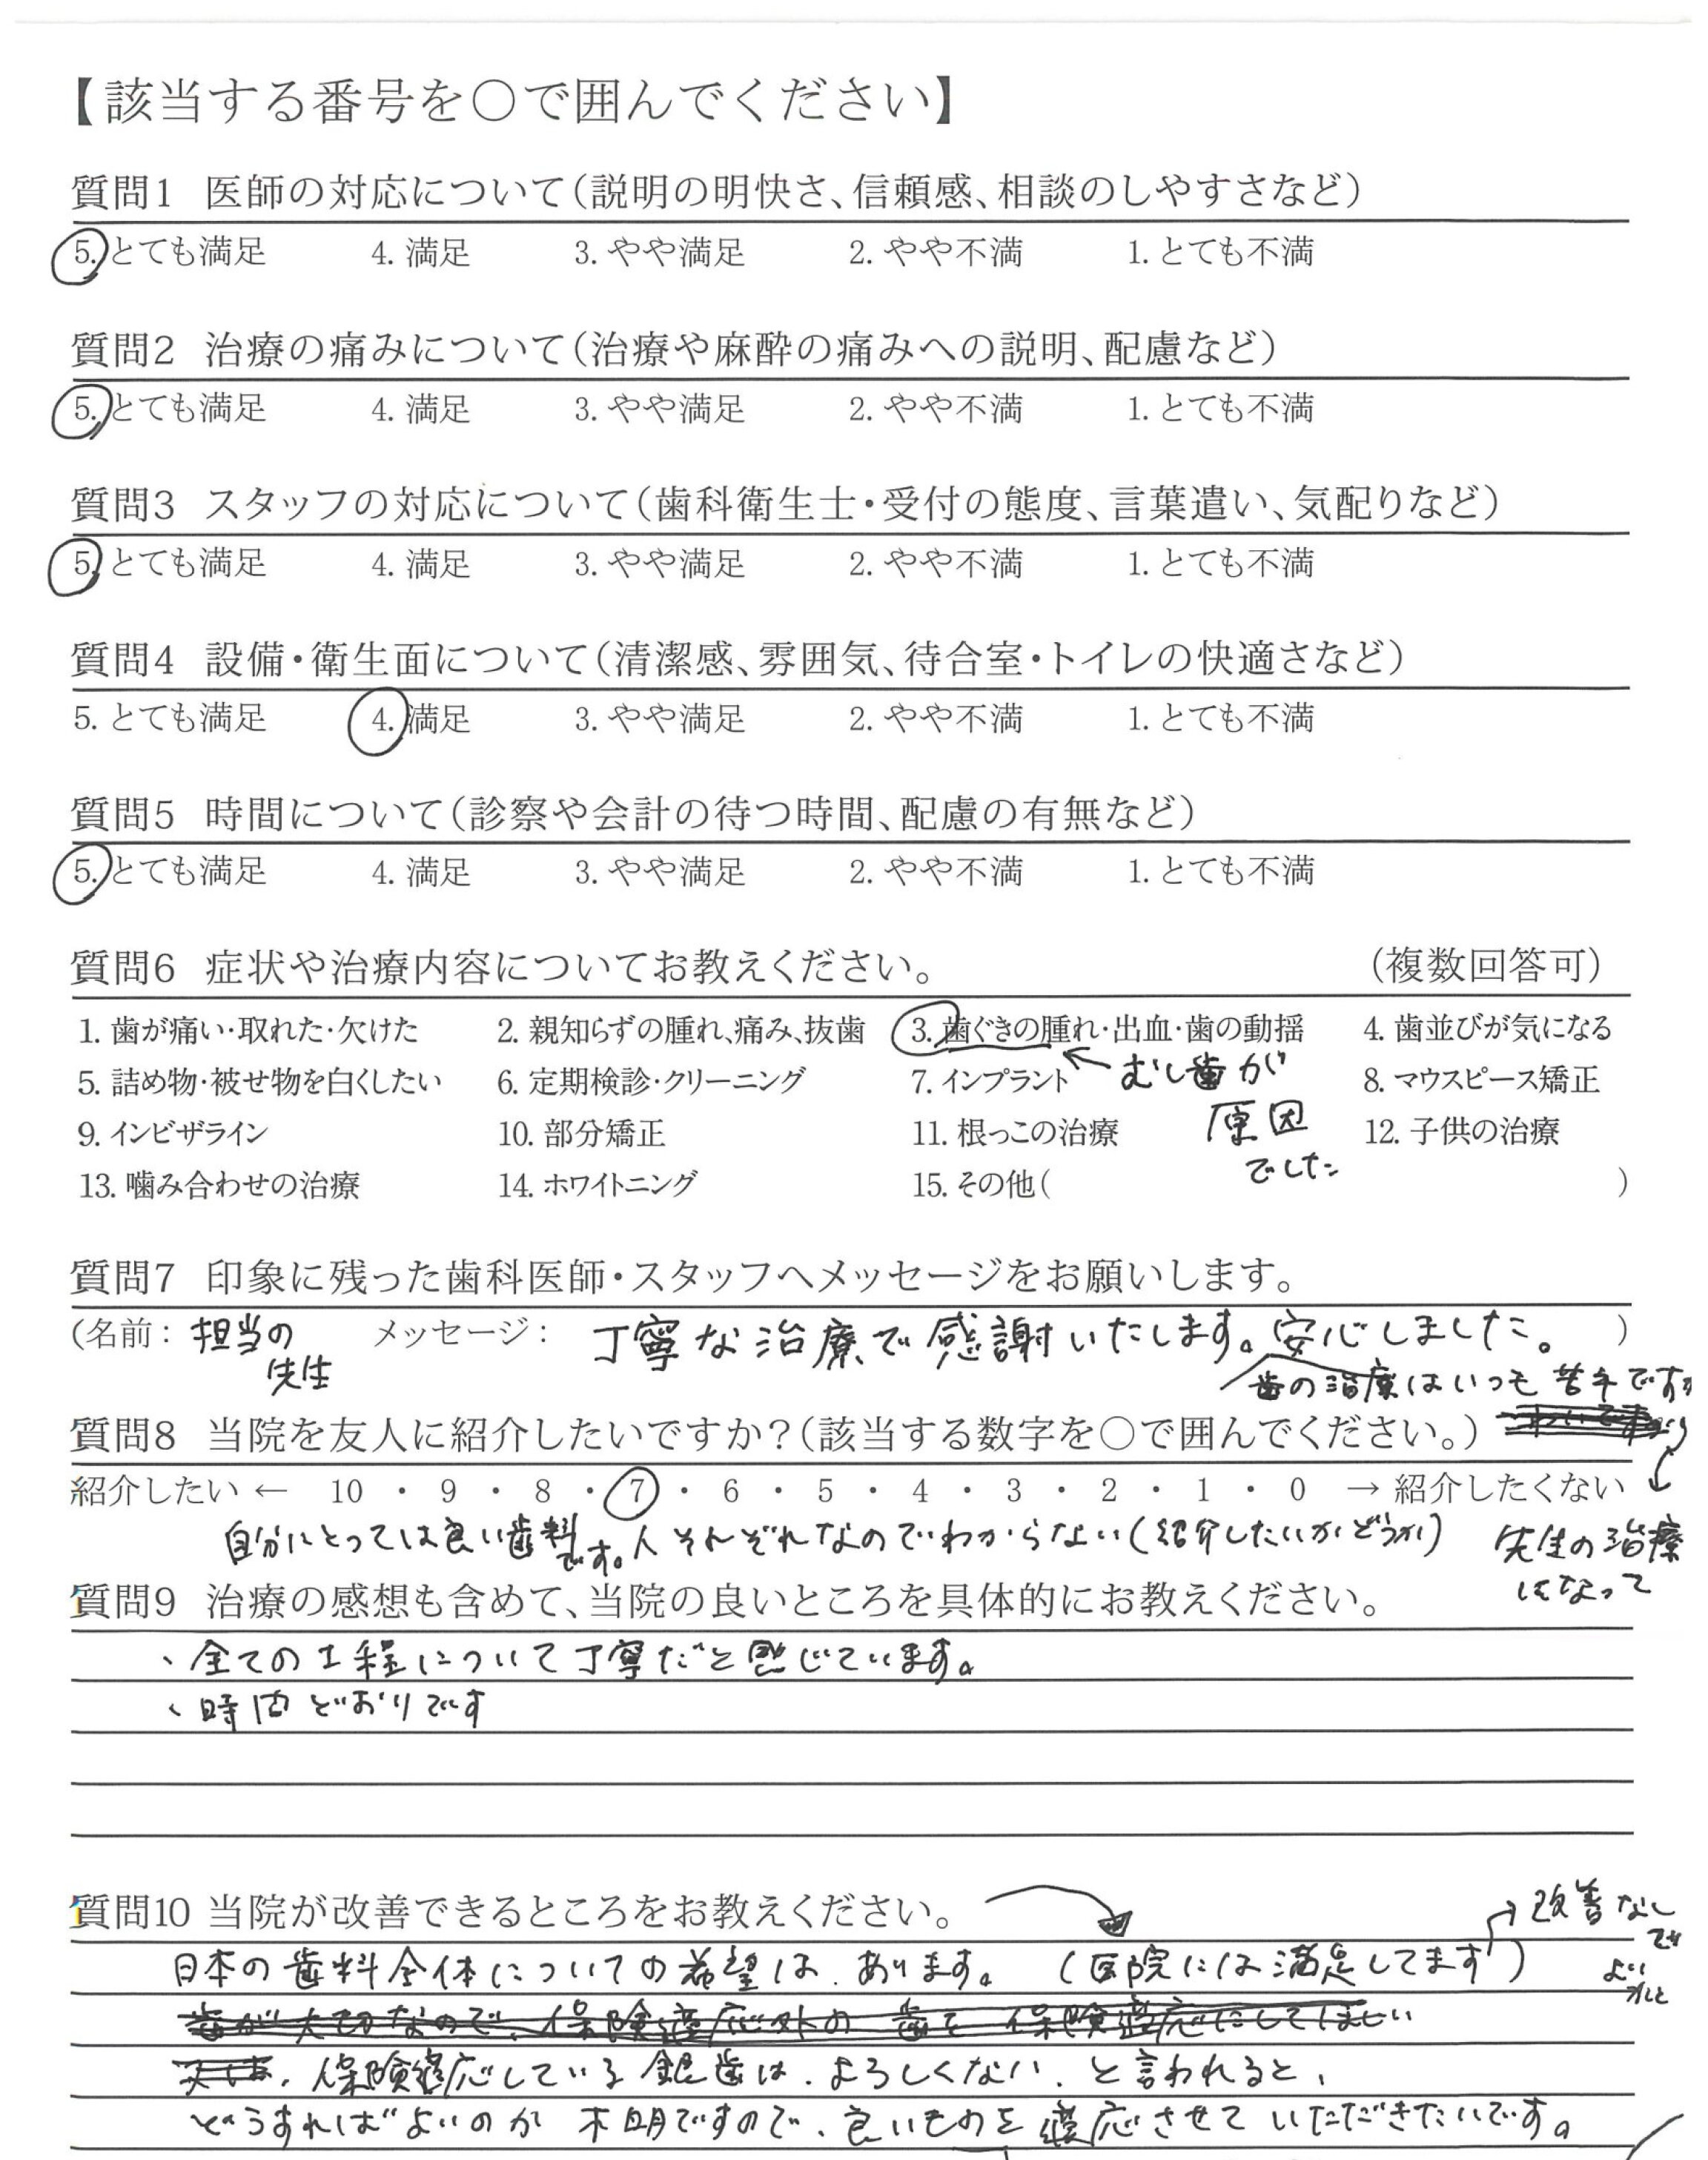 【該当する番号を〇で囲んでください】
質問1 医師の対応について(説明の明快さ、信頼感、相談のしやすさなど)
5. とても満足 4. 満足 3. やや満足 2. やや不満 1. とても不満
質問2 治療の痛みについて(治療や麻酔の痛みへの説明、配慮など)
5. とても満足 4. 満足 3. やや満足 2. やや不満 1. とても不満
質問3 スタッフの対応について(歯科衛生士・受付の態度、言葉遣い、気配りなど)
5. とても満足 4. 満足 3. やや満足 2. やや不満 1. とても不満
質問4 設備・衛生面について(清潔感、雰囲気、待合室・トイレの快適さなど)
5. とても満足 4. 満足 3. やや満足 2. やや不満 1. とても不満
質問5 時間について(診察や会計の待つ時間、配慮の有無など)
5. とても満足 4. 満足 3. やや満足 2. やや不満 1. とても不満
質問6 症状や治療内容についてお教えください。 (複数回答可)
1. 歯が痛い・取れた・欠けた 2. 親知らずの腫れ、痛み、抜歯 3. 歯ぐきの腫れ・出血・歯の動揺 4. 歯並びが気になる
5. 詰め物・被せ物を白くしたい 6. 定期検診・クリーニング 7. インプラント ←むし歯が 8. マウスピース矯正
9. インビザライン 10. 部分矯正 11. 根っこの治療 原因 12. 子供の治療
でした
13. 噛み合わせの治療 14. ホワイトニング 15. その他( )
質問7 印象に残った歯科医師・スタッフへメッセージをお願いします。
(名前: 担当の メッセージ: 丁寧な治療で感謝いたします。安心しました。 )
先生
歯の治療はいつも苦手ですが
質問8 当院を友人に紹介したいですか?(該当する数字を〇で囲んでください。)
紹介したい ← 10 ・ 9 ・ 8 ・ 7 ・ 6 ・ 5 ・ 4 ・ 3 ・ 2 ・ 1 ・ 0 → 紹介したくない
自分にとっては良い歯科です。人それぞれなのでわからない(紹介したいかどうか)
先生の治療
になって
質問9 治療の感想も含めて、当院の良いところを具体的にお教えください。
、全ての工程について丁寧だと感じています。
、時間どおりです
質問10 当院が改善できるところをお教えください。
→改善なし
で
よい
かと
日本の歯科全体についての希望は、あります。 (医院には満足してます)
歯が大切なので、保険適応外の歯を保険適応にしてほしい
、保険適応している銀歯は、よろしくない、と言われると、
どうすればよいのか不明ですので、良いものを適応させていただきたいです。